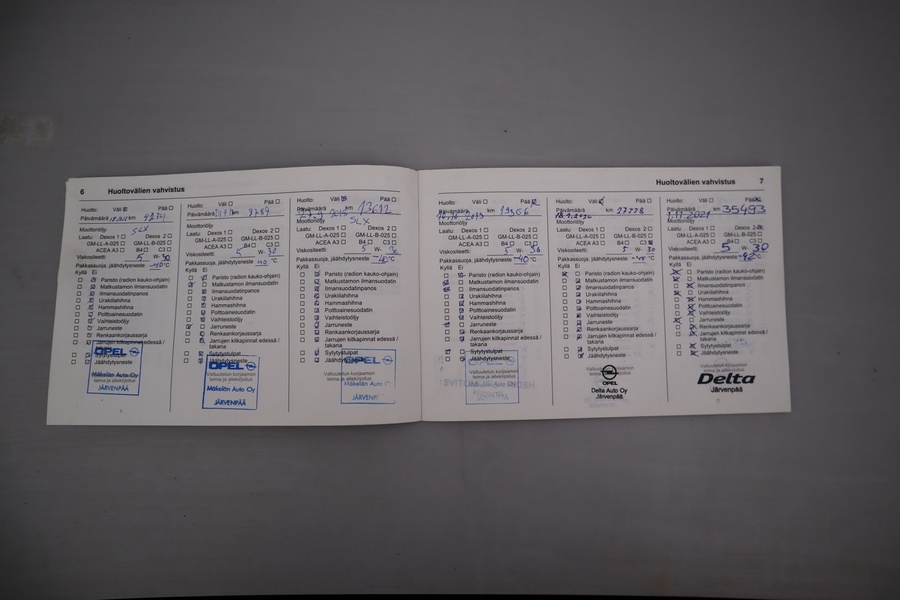 6 Huoltovälien vahvistus
Huolto: Väli Pää
Päivämäärä km
Moottoriöljy SLX
Laatu: Dexos 1 Dexos 2
GM-LL-A-025 GM-LL-B-025
ACEA A3 B4 C3
Viskositeetti 5 W- 30
Pakkassuoja, jäähdytysneste -40 °C
Kyllä Ei
Paristo (radion kauko-ohjain)
Matkustamon ilmansuodatin
Ilmansuodatinpanos
Urakiilahihna
Hammashihna
Polttoainesuodatin
Vaihteistoöljy
Jarruneste
Renkaankorjaussarja
Jarrujen kitkapinnat edessä /
takana
Sytytystulpat
Jäähdytysneste
OPEL
Mäkelän Auto Oy
JÄRVENPÄÄ
Huolto: Väli Pää
Päivämäärä km
Moottoriöljy
Laatu: Dexos 1 Dexos 2
GM-LL-A-025 GM-LL-B-025
ACEA A3 B4 C3
Viskositeetti 5 W- 30
Pakkassuoja, jäähdytysneste -40 °C
Kyllä Ei
Paristo (radion kauko-ohjain)
Matkustamon ilmansuodatin
Ilmansuodatinpanos
Urakiilahihna
Hammashihna
Polttoainesuodatin
Vaihteistoöljy
Jarruneste
Renkaankorjaussarja
Jarrujen kitkapinnat edessä /
takana
Sytytystulpat
Jäähdytysneste
OPEL
Valtuutetun korjaamon
leima ja allekirjoitus
Mäkelän Auto Oy
JÄRVENPÄÄ
Huolto: Väli Pää
Päivämäärä 2015 km 13612
Moottoriöljy SLX
Laatu: Dexos 1 Dexos 2
GM-LL-A-025 GM-LL-B-025
ACEA A3 B4 C3
Viskositeetti 5 W-
Pakkassuoja, jäähdytysneste -40 °C
Kyllä Ei
Paristo (radion kauko-ohjain)
Matkustamon ilmansuodatin
Ilmansuodatinpanos
Urakiilahihna
Hammashihna
Polttoainesuodatin
Vaihteistoöljy
Jarruneste
Renkaankorjaussarja
Jarrujen kitkapinnat edessä /
takana
Sytytystulpat
Jäähdytysneste
OPEL
Valtuutetun korjaamon
leima ja allekirjoitus
Mäkelän Auto
JÄRVENP
Huoltovälien vahvistus 7
Huolto: Väli Pää
Päivämäärä km
Moottoriöljy
Laatu: Dexos 1 Dexos 2
GM-LL-A-025 GM-LL-B-025
ACEA A3 B4 C3
Viskositeetti 5 W- 30
Pakkassuoja, jäähdytysneste -40 °C
Kyllä Ei
Paristo (radion kauko-ohjain)
Matkustamon ilmansuodatin
Ilmansuodatinpanos
Urakiilahihna
Hammashihna
Polttoainesuodatin
Vaihteistoöljy
Jarruneste
Renkaankorjaussarja
Jarrujen kitkapinnat edessä /
takana
Sytytystulpat
Jäähdytysneste
Valtuutetun korjaamon
leima ja allekirjoitus
Huolto: Väli Pää
Päivämäärä km 27778
Moottoriöljy
Laatu: Dexos 1 Dexos 2
GM-LL-A-025 GM-LL-B-025
ACEA A3 B4 C3
Viskositeetti 5 W- 30
Pakkassuoja, jäähdytysneste °C
Kyllä Ei
Paristo (radion kauko-ohjain)
Matkustamon ilmansuodatin
Ilmansuodatinpanos
Urakiilahihna
Hammashihna
Polttoainesuodatin
Vaihteistoöljy
Jarruneste
Renkaankorjaussarja
Jarrujen kitkapinnat edessä /
takana
Sytytystulpat
Jäähdytysneste
Valtuutetun korjaamon
leima ja allekirjoitus
OPEL
Delta Auto Oy
Järvenpää
Huolto: Väli Pää
Päivämäärä 1.11.2021 km 35493
Moottoriöljy
Laatu: Dexos 1 Dexos 2
GM-LL-A-025 GM-LL-B-025
ACEA A3 B4 C3
Viskositeetti 5 W- 30
Pakkassuoja, jäähdytysneste °C
Kyllä Ei
Paristo (radion kauko-ohjain)
Matkustamon ilmansuodatin
Ilmansuodatinpanos
Urakiilahihna
Hammashihna
Polttoainesuodatin
Vaihteistoöljy
Jarruneste
Renkaankorjaussarja
Jarrujen kitkapinnat edessä /
takana
Sytytystulpat
Jäähdytysneste
Valtuutetun korjaamon
leima ja allekirjoitus
Delta
Järvenpää